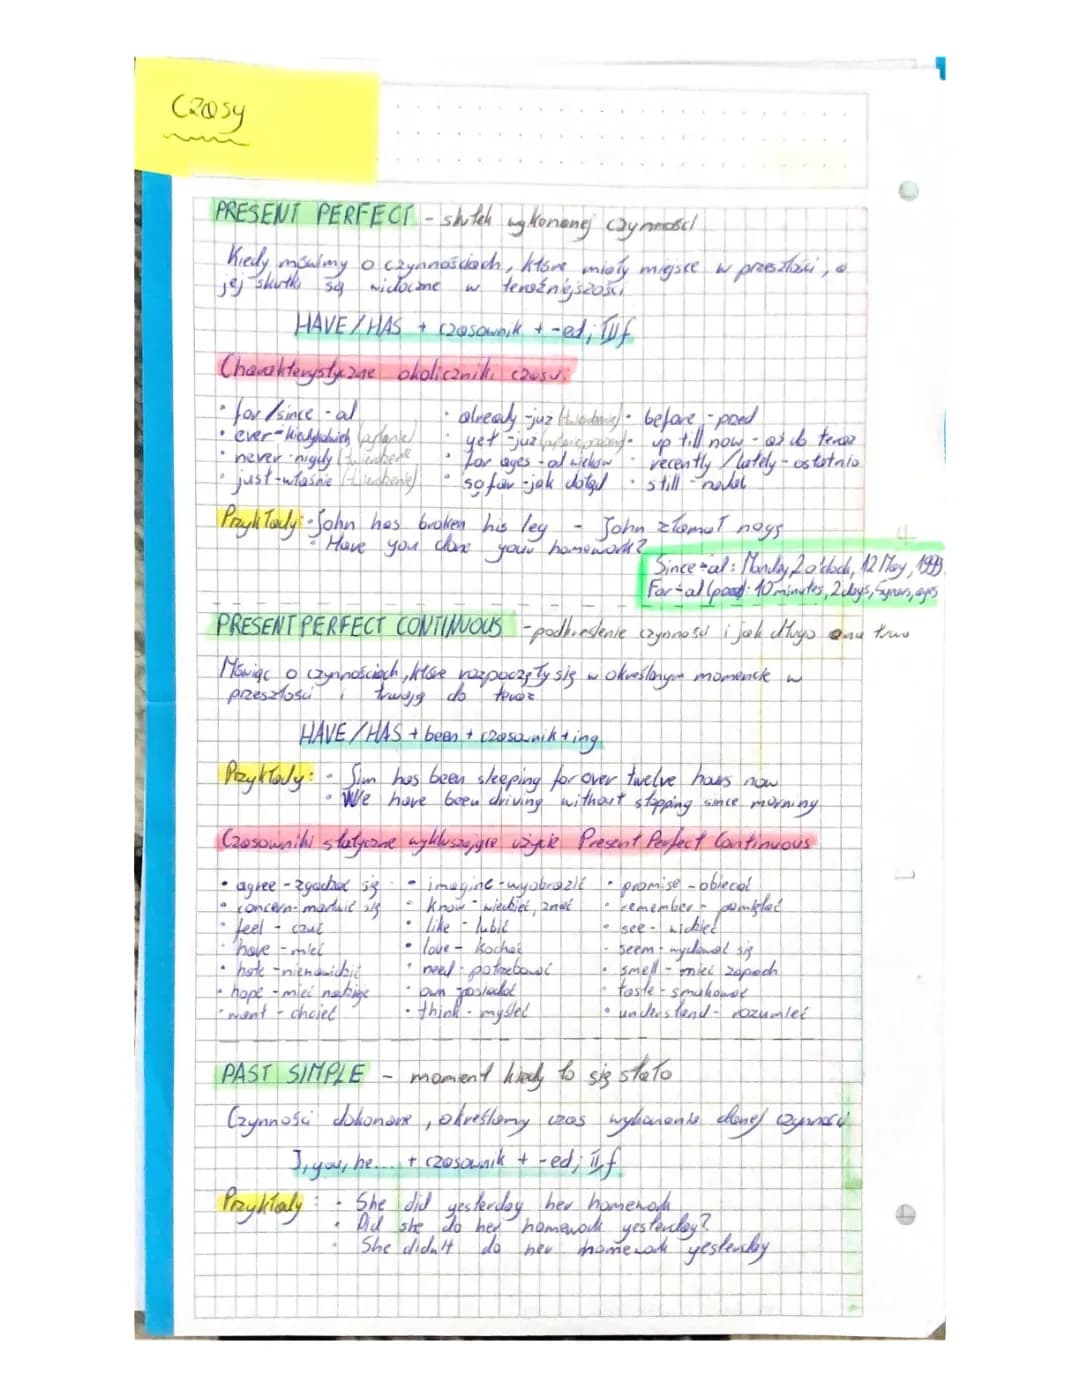 Czasy
PRESENT PERFECT - skutek wykonanej czynności
Kiedy mówimy o czynnościach, które miały miejsce w przeszłości, a
jej skutki są widoczne w teraźniejszości
HAVE/HAS + czasownik + -ed; IIIf
Charakterystyczne okoliczniki czasu:
• for/since - od
• ever - kiedykolwiek (pytanie)
• never - nigdy (twierdzenie
• just - właśnie (twierdzenie)
• already - już (twierdzenie)
• yet - już
• for ages - od wieków
• so far - jak dotąd
• before - przed
• up till now - aż do teraz
• recently / lately - ostatnio
• still - nadal
Przykłady: • John has broken his leg - John złamał nogę
• Have you done your homework?
Since - od: Monday, 2 o'clock, 12 May, 1999
For - od (przed): 10 minutes, 2 days, 5 years, ages
PRESENT PERFECT CONTINUOUS - podkreślenie czynności i jak długo ona trwa
Mówiąc o czynnościach, które rozpoczęły się w określonym momencie w
przeszłości i trwają do teraz
HAVE/HAS + been + czasownik + ing
Przykłady: • Sim has been sleeping for over twelve hours now
• We have been driving without stopping since morning
Czasowniki statyczne wykluczające użycie Present Perfect Continuous
• agree - zgadzać się
• concern - martwić się
• feel - czuć
• have - mieć
• hate - nienawidzić
• hope - mieć nadzieję
• want - chcieć
• imagine - wyobrazić
• know - wiedzieć, znać
• like - lubić
• love - kochać
• need - potrzebować
• own - posiadać
• think - myśleć
• promise - obiecać
• remember - pamiętać
• see - widzieć
• seem - wydawać się
• smell - mieć zapach
• taste - smakować
• understand - rozumieć
PAST SIMPLE - moment kiedy to się stało
Czynności dokonane, określamy czas wykonania danej czynności
I, you, he... + czasownik + -ed; IIf
Przykłady: • She did yesterday her homework
• Did she do her homework yesterday?
• She didn't do her homework yesterday